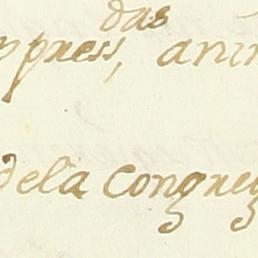 das
ppress, anim
dela congreg